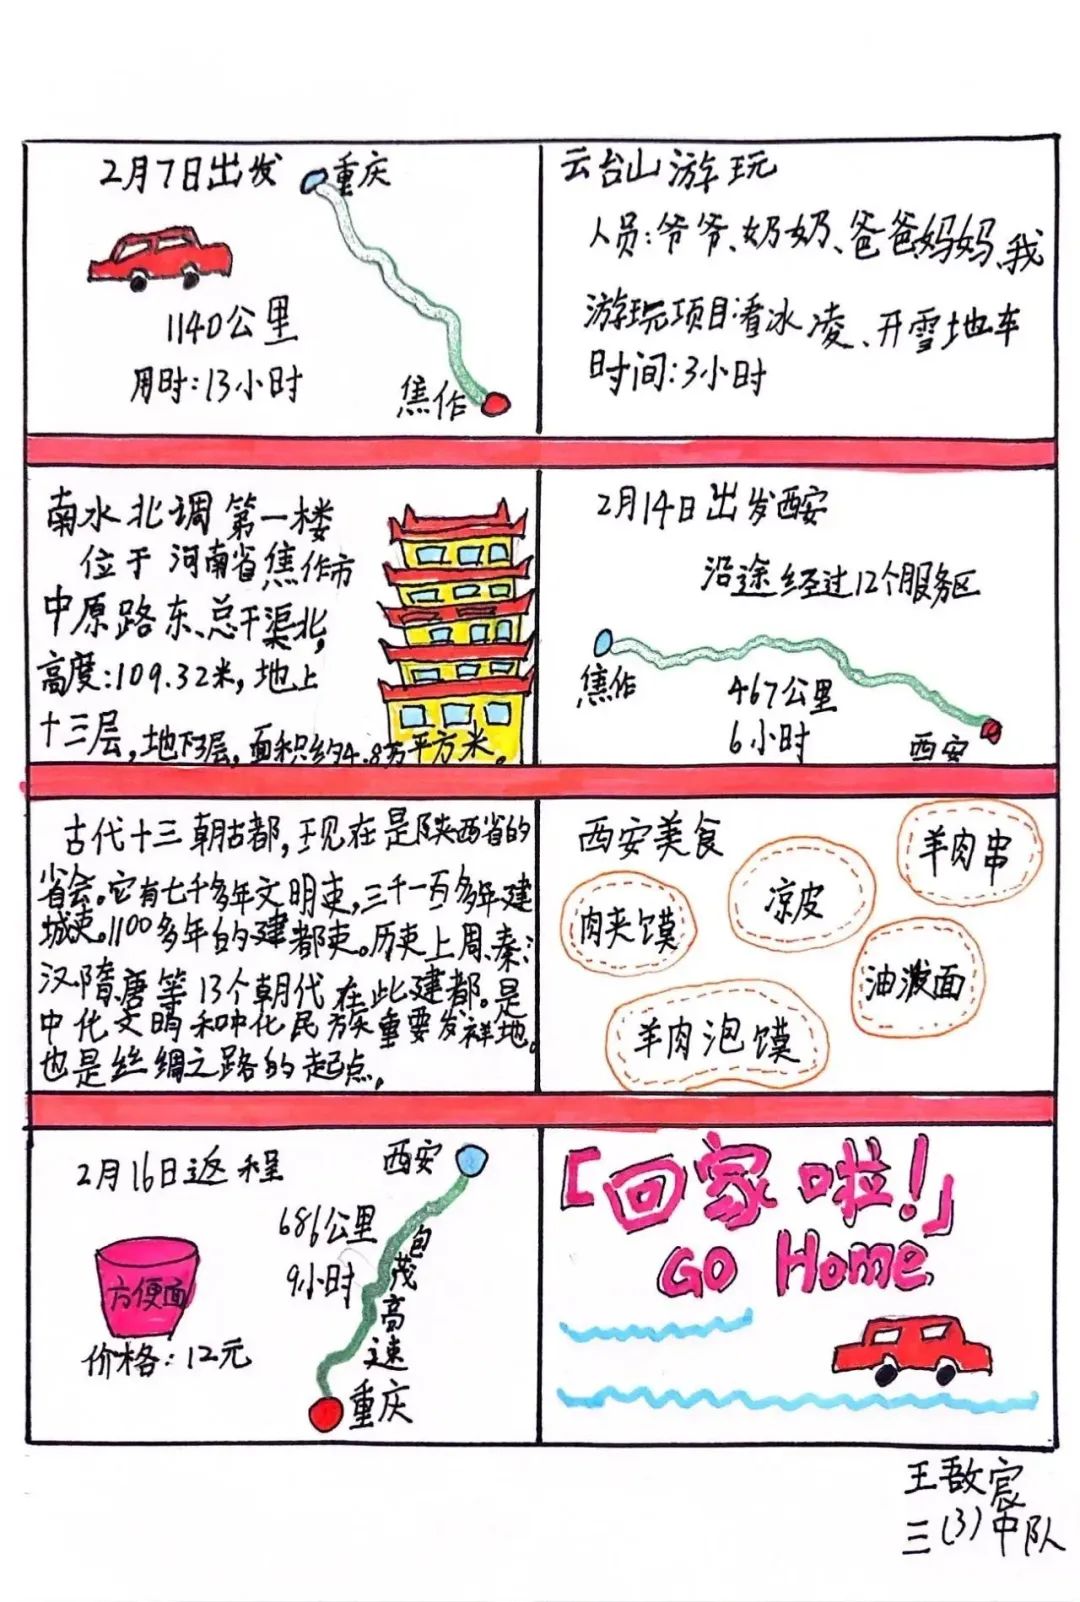 2月7日出发
重庆
1140公里
用时:13小时
焦作
云台山游玩
人员:爷爷、奶奶、爸爸妈妈、我
游玩项目:看冰凌、开雪地车
时间:3小时
南水北调第一楼
位于河南省焦作市
中原路东、总干渠北,
高度:109.32米,地上
十三层,地下3层,面积约4.8万平方米。
2月14日出发西安
沿途经过12个服务区
焦作
467公里
6小时
西安
古代十三朝古都,现在是陕西省的
省会。它有七千多年文明史,三千一百多年建
城史。1100多年的建都史。历史上周、秦、
汉、隋、唐等13个朝代在此建都。是
中化文明和中化民族重要发祥地。
也是丝绸之路的起点。
西安美食
羊肉串
凉皮
肉夹馍
油泼面
羊肉泡馍
2月16日返程
西安
686公里
9小时
包茂高速
方便面
价格:12元
重庆
「回家啦!」
GO Home
王敔宸
三(3)中队